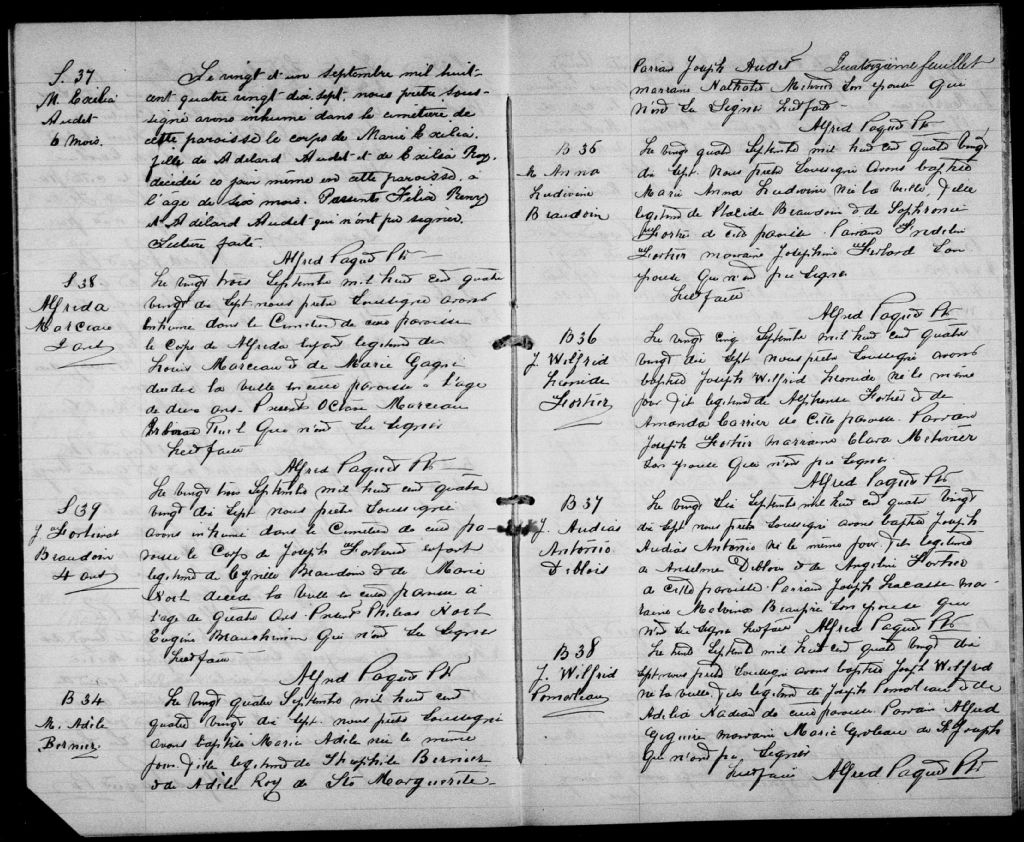 S. 37
M. Exilia
Audet
6 mois.
Le vingt et un septembre mil huit-
cent quatre vingt dix sept, nous prêtre sous-
signé avons inhumé dans le cimetière de
cette paroisse le corps de Marie Exilia.
fille de Adelard Audet et de Exilia Roy.
décédée ce jour même en cette paroisse, à
l'age de six mois. Présents Félix Remy
et Adélard Audet qui n'ont pu signer.
Lecture faite.
Alfred Paquet Ptr
S 38
Alfrida
Marceau
2 ans
Le vingt trois Septembre mil huit cent quatre
vingt dix Sept nous prêtre Soussigné avons
inhumé dans le Cimetière de cette paroisse
le Corps de Alfrida enfant legitime de
Louis Marceau & de Marie Gagné
decedée la veille en cette paroisse a l'age
de deux ans. Present Octave Marceau
Que n'ont Su Signer
Lect faite
Alfred Paquet Ptr
S 39
J Fortunat
Beaudoin
4 ans
Le vingt trois Septembre mil huit cent quatre
vingt dix Sept nous prêtre Soussigné
avons inhumé dans le Cimetière de cette pa-
roisse le Corps de Joseph Fortunat enfant
legitime de Cyrille Beaudoin & de Marie
decedé la veille en cette paroisse a
l'age de quatre ans. Present Phileas
Eugène Qui n'ont Su Signer
Lect faite
Alfred Paquet Ptr
B 34
M. Adile
Bernier
Le vingt quatre Septembre mil huit cent
quatre vingt dix Sept nous prêtre Soussigné
avons baptisé Marie Adile née le même
jour fille legitime de Theophile Bernier
& de Adile Roy de Ste Marguerite
Parrain Joseph Audet Quatorzième feuillet
marraine Nathalie Son épouse Que
n'ont Su Signer Lect faite
Alfred Paquet Ptr
B 35
M Anna
Ludivine
Beaudoin
Le vingt quatre Septembre mil huit cent quatre vingt
dix Sept Nous prêtre Soussigné Avons baptisé
Marie Anna Ludivine née la veille fille
legitime de Placide Beaudoin & de Sophronie
Fortier de cette paroisse. Parrain
Fortier marraine Josephine Son
épouse Qui n'ont pu Signer
Lect faite
Alfred Paquet Ptr
B 36
J. Wilfrid
Leonide
Fortier
Le vingt cinq Septembre mil huit cent quatre
vingt dix Sept nous prêtre Soussigné avons
baptisé Joseph Wilfrid Leonide né le même
jour fils legitime de Alphonse Fortier & de
Amanda Carrier de Cette paroisse. Parrain
Joseph Fortier marraine Clara Metivier
Son épouse Qui n'ont pu Signer
Alfred Paquet Ptr
B 37
J. Audias
Antonio
Deblois
Le vingt Six Septembre mil huit cent quatre vingt
dix Sept nous prêtre Soussigné avons baptisé Joseph
Audias Antonio né le même jour fils legitime
de Anselme Deblois & de Angelina Fortier
de Cette paroisse. Parrain Joseph Lacasse mar-
raine Malvina Beaupré Son épouse Que
n'ont Su Signer Lect faite Alfred Paquet Ptr
B 38
J. Wilfrid
Pomerleau
Le trente Septembre mil huit cent quatre vingt dix
Sept nous prêtre Soussigné avons baptisé Joseph Wilfrid
né la veille fils legitime de Joseph Pomerleau & de
Adelia Nadeau de cette paroisse. Parrain Alfred
Giguère marraine Marie Groleau de St Joseph
Qui n'ont pu Signer
Lect faite Alfred Paquet Ptr